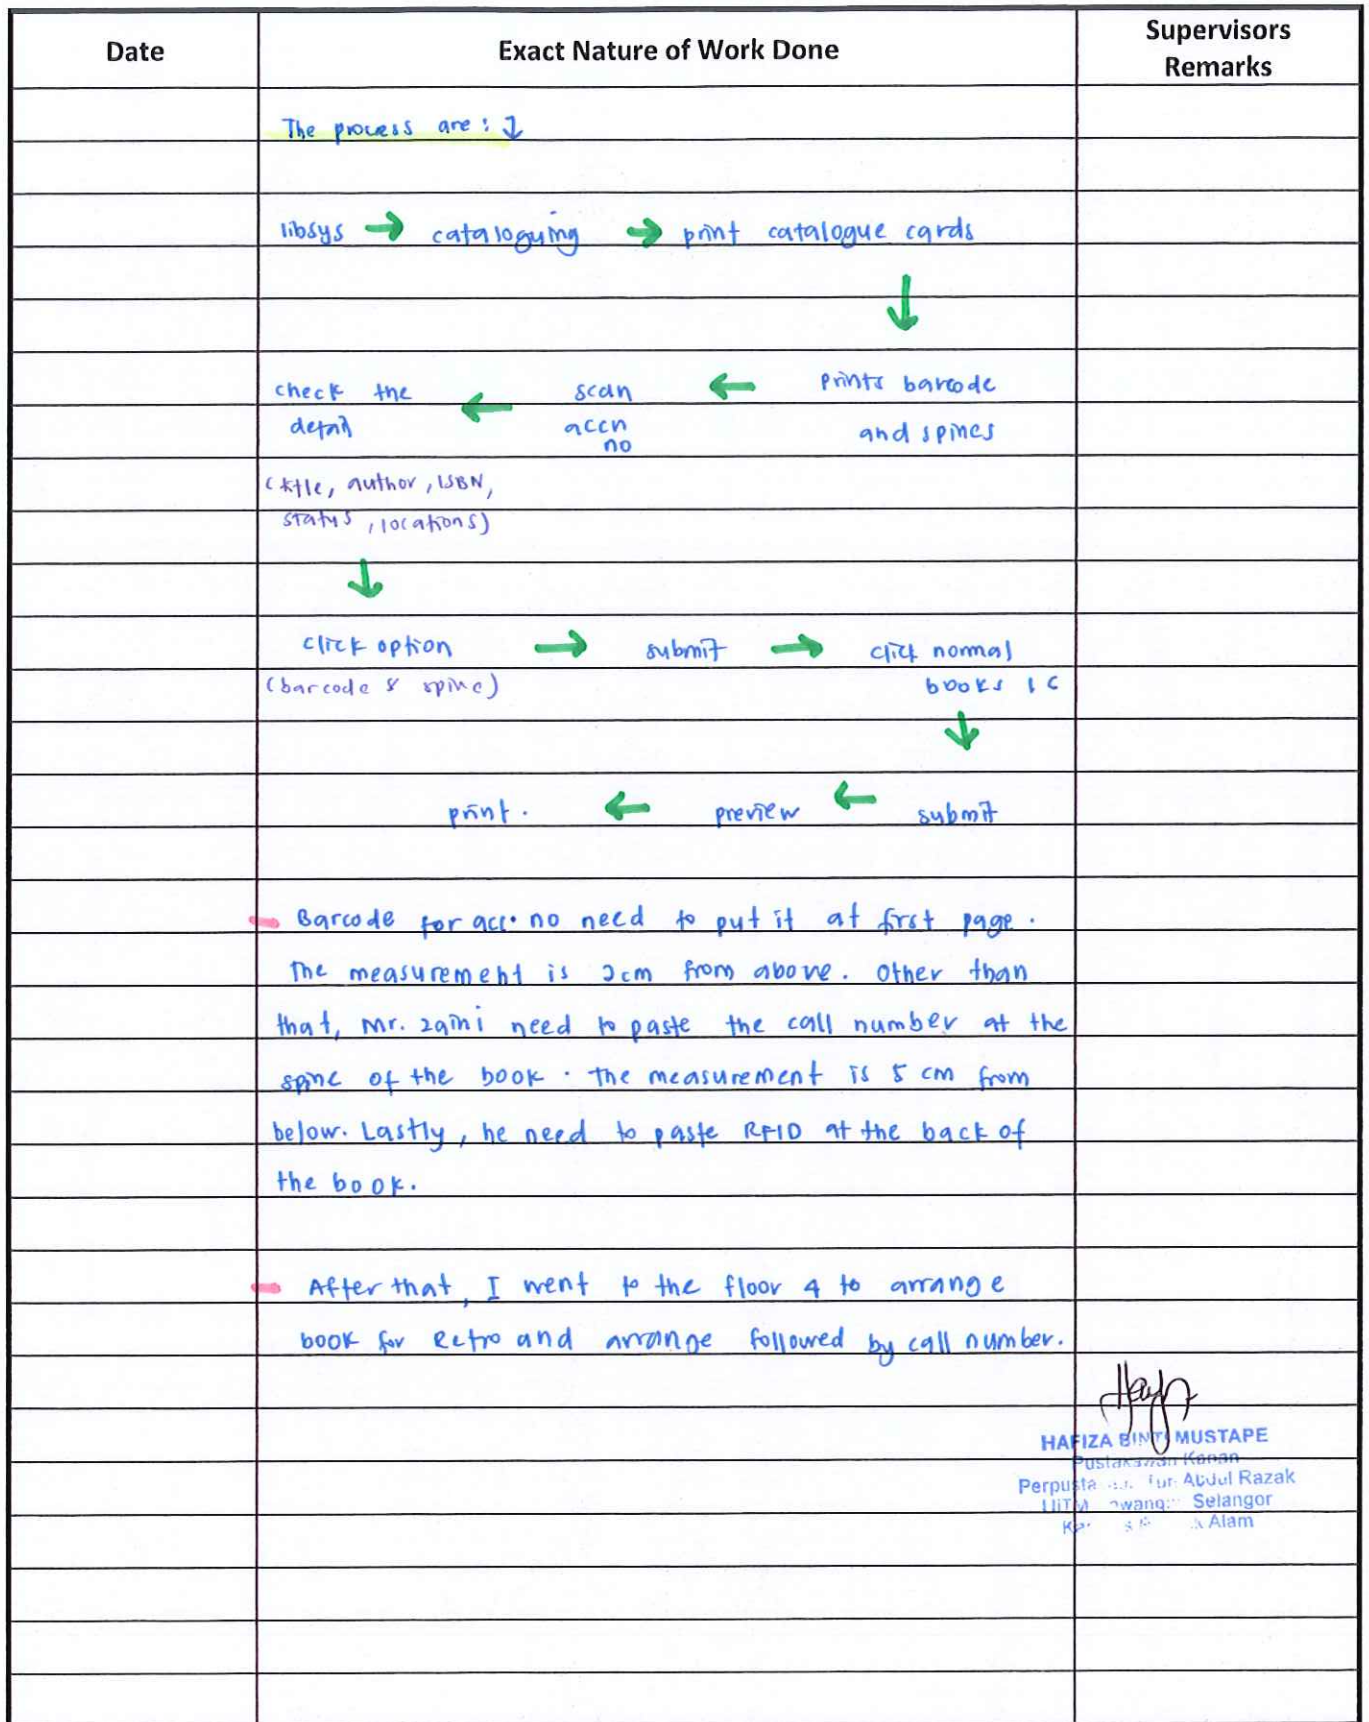 Date Exact Nature of Work Done Supervisors
Remarks
The process are :
libsys → cataloguing → print catalogue cards
↓
check the ← scan ← prints barcode
detail accn and spines
no
(title, author, ISBN,
status, locations)
↓
click option → submit → click normal
(barcode & spine) books 1 C
↓
print. ← preview ← submit
- Barcode for acc. no need to put it at first page.
The measurement is 2cm from above. Other than
that, Mr. Zaini need to paste the call number at the
spine of the book. The measurement is 5 cm from
below. Lastly, he need to paste RFID at the back of
the book.
- After that, I went to the floor 4 to arrange
book for Retro and arrange followed by call number.
HAFIZA BINTI MUSTAPE
Pustakawan Kanan
Abdul Razak
UiTM Selangor
Alam